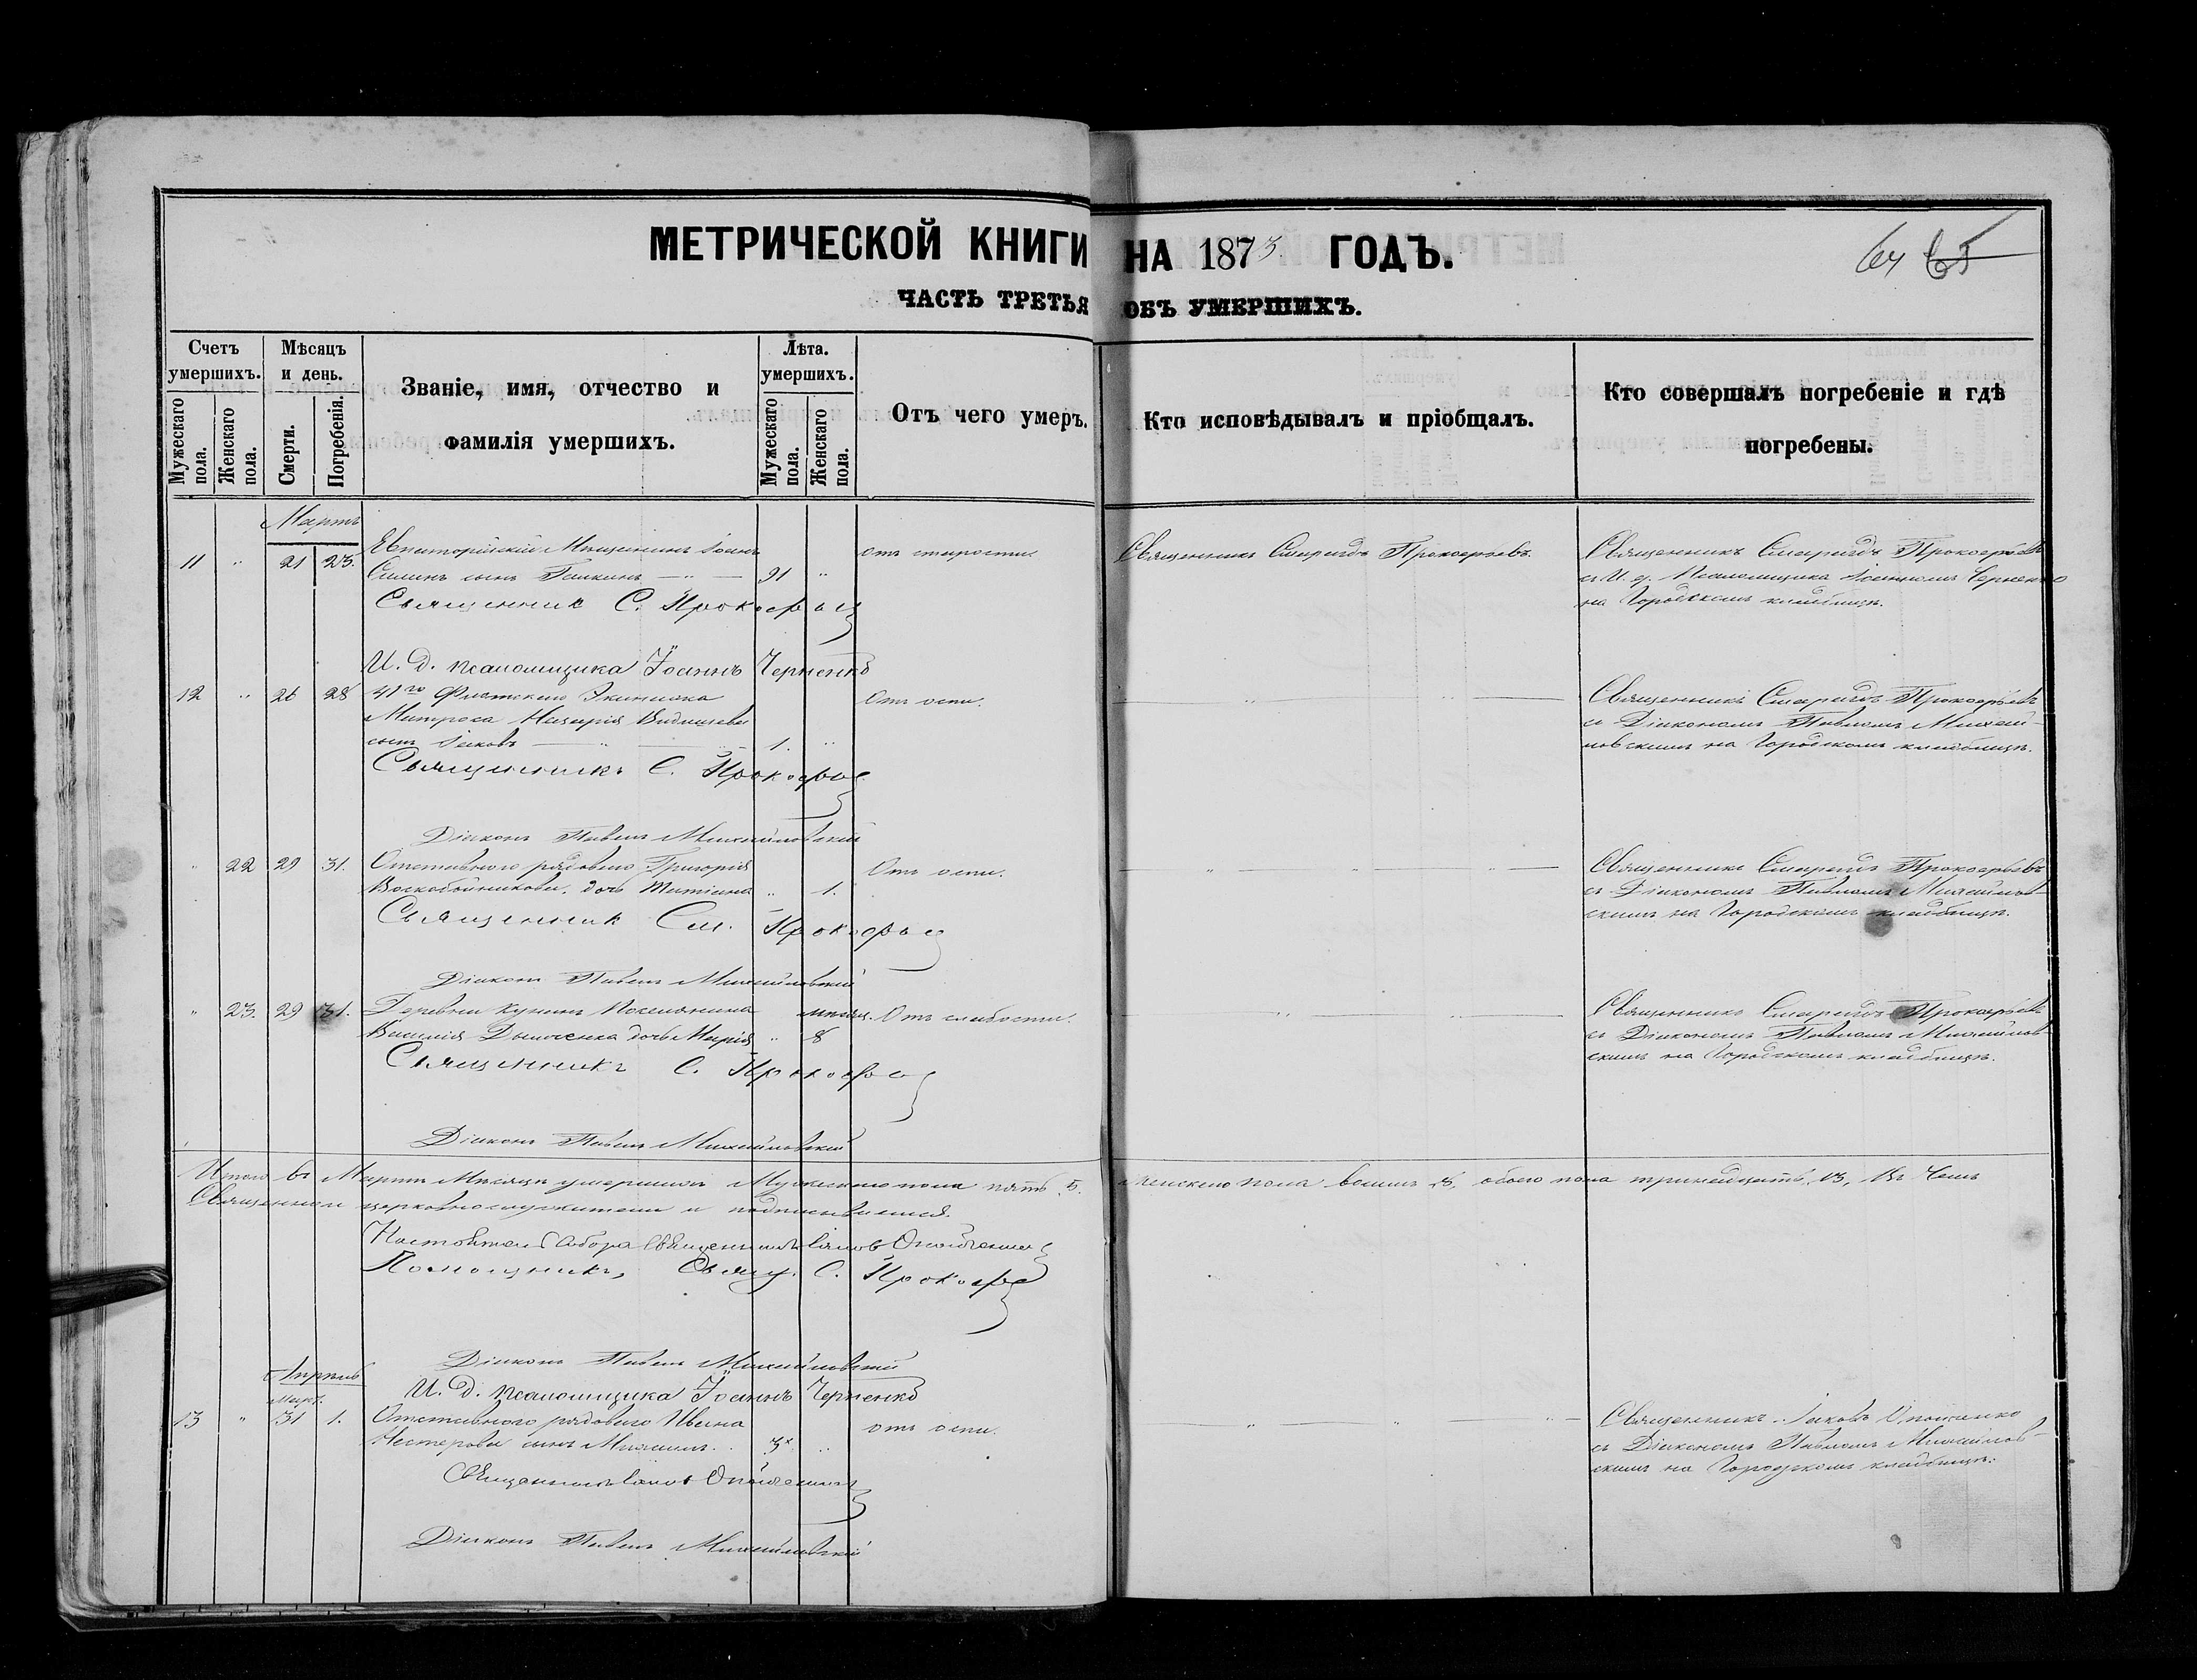 МЕТРИЧЕСКОЙ КНИГИ НА 1873 ГОДЪ.
64 65
ЧАСТЬ ТРЕТЬЯ ОБЪ УМЕРШИХЪ.
Счетъ умершихъ.
Мужескаго пола.
Женскаго пола.
Мѣсяцъ и день.
Смерти.
Погребенія.
Званіе, имя, отчество и
фамилія умершихъ.
Лѣта.
умершихъ.
Мужескаго пола.
Женскаго пола.
Отъ чего умеръ.
Кто исповѣдывалъ и пріобщалъ.
Кто совершалъ погребеніе и гдѣ
погребены.
Мартъ
11 " 21 23. Евпаторійскій Мѣщанинъ Іоанъ
сынъ — " — 91 "
отъ старости
Священникъ Спиридъ Прокофьевъ.
Священникъ Спиридъ Прокофьевъ
съ И. д. Псаломщика Іоанномъ Черненко
на Городскомъ кладбищѣ.
Священникъ С. Прокофьев
И. д. псаломщика Іоаннъ Черненко
12 " 26 28 41го Флотскаго Экипажа
Матроса Назарія
сынъ Іаковъ — " — 1. "
Отъ оспы.
Священникъ Спиридъ Прокофьевъ
съ Діакономъ Павломъ Михай-
ловскимъ на Городскомъ кладбищѣ.
Священникъ С. Прокофьев
Діаконъ Павелъ Михайловскій
" 22 29 31. Отставного рядового Григорія
Воскобойникова дочь Татіана " 1.
Отъ оспы.
Священникъ Спиридъ Прокофьевъ
съ Діакономъ Павломъ Михайлов-
скимъ на Городскомъ кладбищѣ.
Священник Сп. Прокофьев
Діаконъ Павелъ Михайловскій
" 23. 29 31. Деревни Поселянина
Василія дочь Марія " мѣсяц. 8
Отъ слабости.
Священникъ Спиридъ Прокофьевъ
съ Діакономъ Павломъ Михайлов-
скимъ на Городскомъ кладбищѣ.
Священникъ С. Прокофьев
Діаконъ Павелъ Михайловскій
Итого въ Мартѣ Мѣсяцѣ умершихъ Мужескаго пола пять 5. женскаго пола восемь 8, обоего пола тринадцать 13, Въ чемъ
Священно и церковнослужители и подписываемся.
Настоятель Собора Священникъ Іаковъ
Помощникъ, Свящ. С. Прокофьев
Діаконъ Павелъ Михайловскій
И. д. псаломщика Іоаннъ Черненко
Апрѣль
Март.
13 " 31 1. Отставного рядового Ивана
Нестерова сынъ 3 "
отъ оспы.
Священникъ Іаковъ
съ Діакономъ Павломъ Михайлов-
скимъ на Городскомъ кладбищѣ.
Священникъ Іаковъ
Діаконъ Павелъ Михайловскій